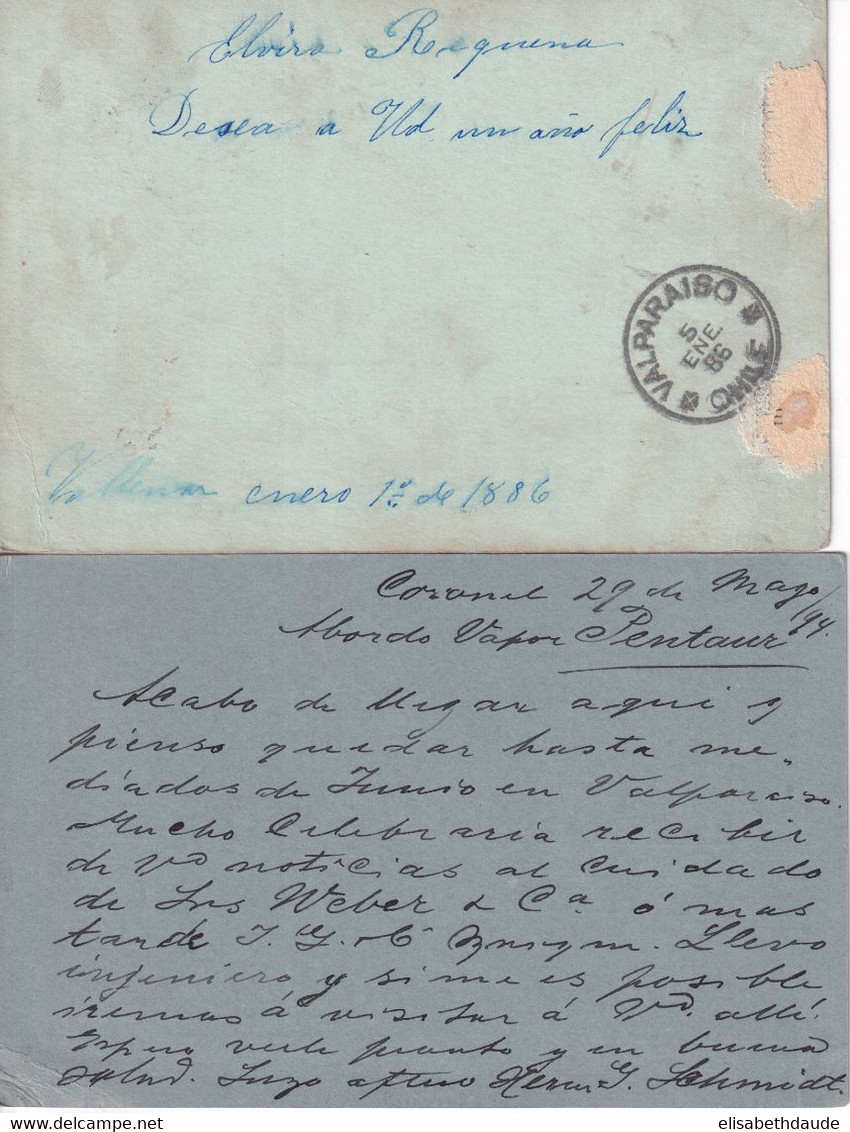 Elvira Requena
Desea a Ud. un año feliz
VALPARAISO
5
ENE
86
CHILE
Vallenar enero 1º de 1886
Coronel 29 de Mayo/94.
Abordo Vapor Pentaur
Acabo de llegar aqui y
pienso quedar hasta me„
diados de Junio en Valparaiso.
Mucho Celebraria recibir
de Vd noticias al cuidado
de Srs Weber & Cª ó mas
tarde Llevo
injeniero y si me es posible
iremos á visitar á Vd. allí.
Espero verle pronto y en buena
salud. Suyo afmo Herm. G. Schmidt.
elisabethdaude